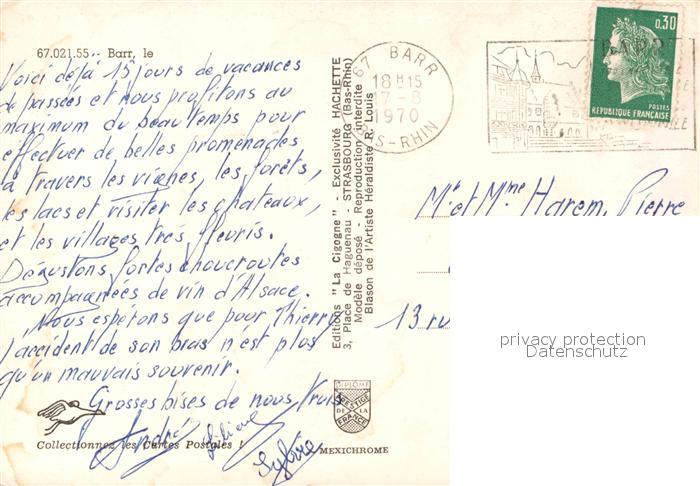 67.021.55 - Barr, le
Voici déjà 15 jours de vacances
de passées et nous profitons au
maximum du beau temps pour
effectuer de belles promenades
à travers les vignes, les forêts,
les lacs et visiter les chateaux,
et les villages très fleuris.
Dégustons fortes choucroutes
accompagnées de vin d'Alsace.
Nous espérons que pour Thierry
l'accident de son bras n'est plus
qu'un mauvais souvenir.
Grosses bises de nous trois
André
Liliane
Sylvie
Collectionnez les Cartes Postales !
Editions "La Cigogne" - Exclusivité HACHETTE
3, Place de Haguenau - STRASBOURG (Bas-Rhin)
Modèle déposé - Reproduction interdite
Blason de l'Artiste Héraldiste R. Louis
DIPLOME
PRESTIGE
DE LA
FRANCE
MEXICHROME
67 BARR
18H15
7-8
1970
BAS-RHIN
BARR
0,30
POSTES
REPUBLIQUE FRANÇAISE
Mr et Mme Harem, Pierre
13 ru
privacy protection
Datenschutz